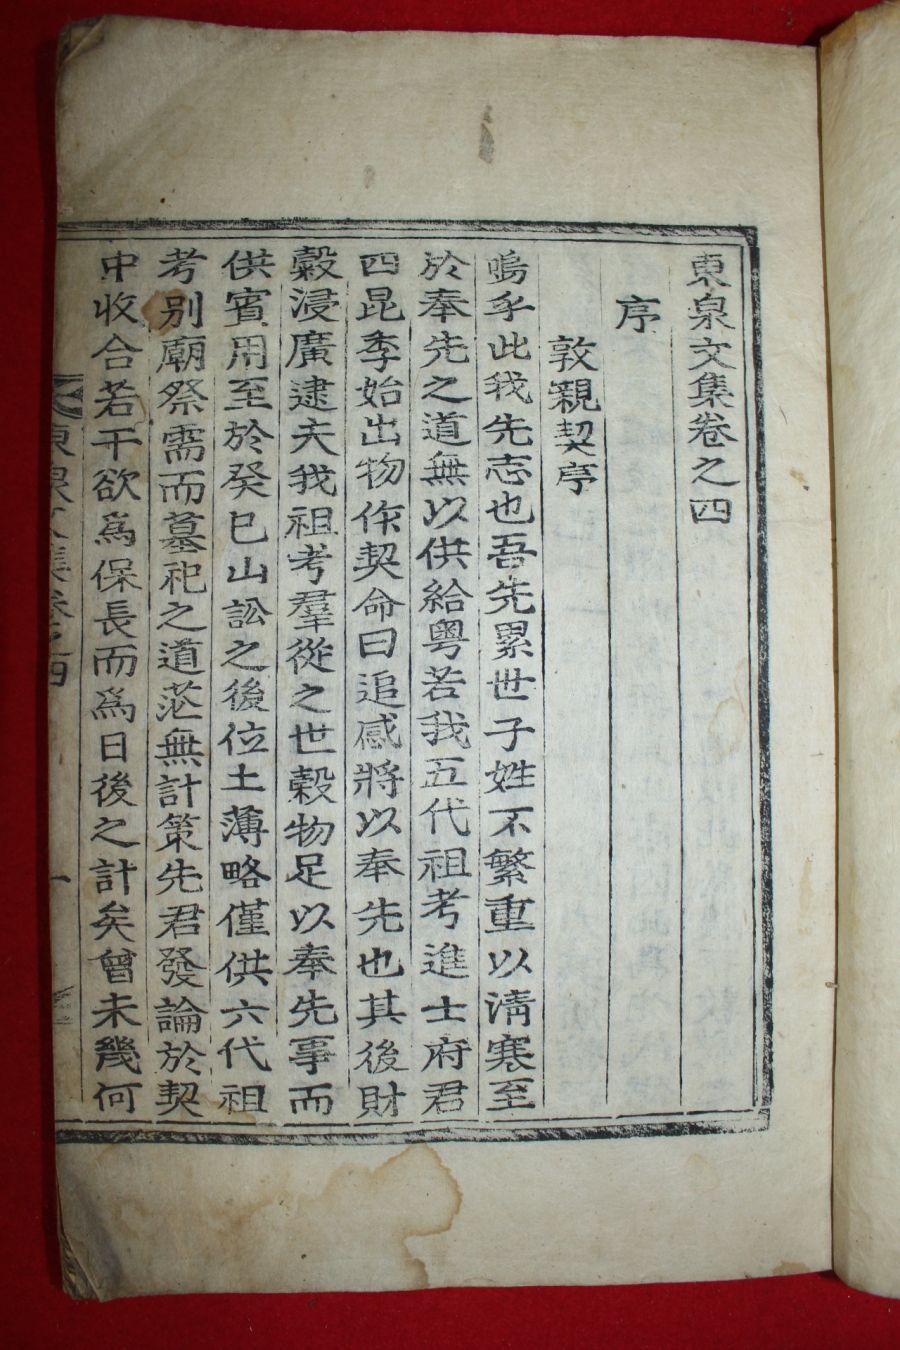 東泉文集卷之四
序
敦親契序
嗚乎此我先志也吾先累世子姓不繁重以淸寒至
於奉先之道無以供給粤若我五代祖考進士府君
四昆季始出物作契命曰追感將以奉先也其後財
穀浸廣逮夫我祖考羣從之世穀物足以奉先事而
供賓用至於癸巳山訟之後位土薄略僅供六代祖
考別廟祭需而墓祀之道茫無計策先君發論於契
中收合若干欲爲保長而爲日後之計矣曾未幾何
東泉文集卷之四 一